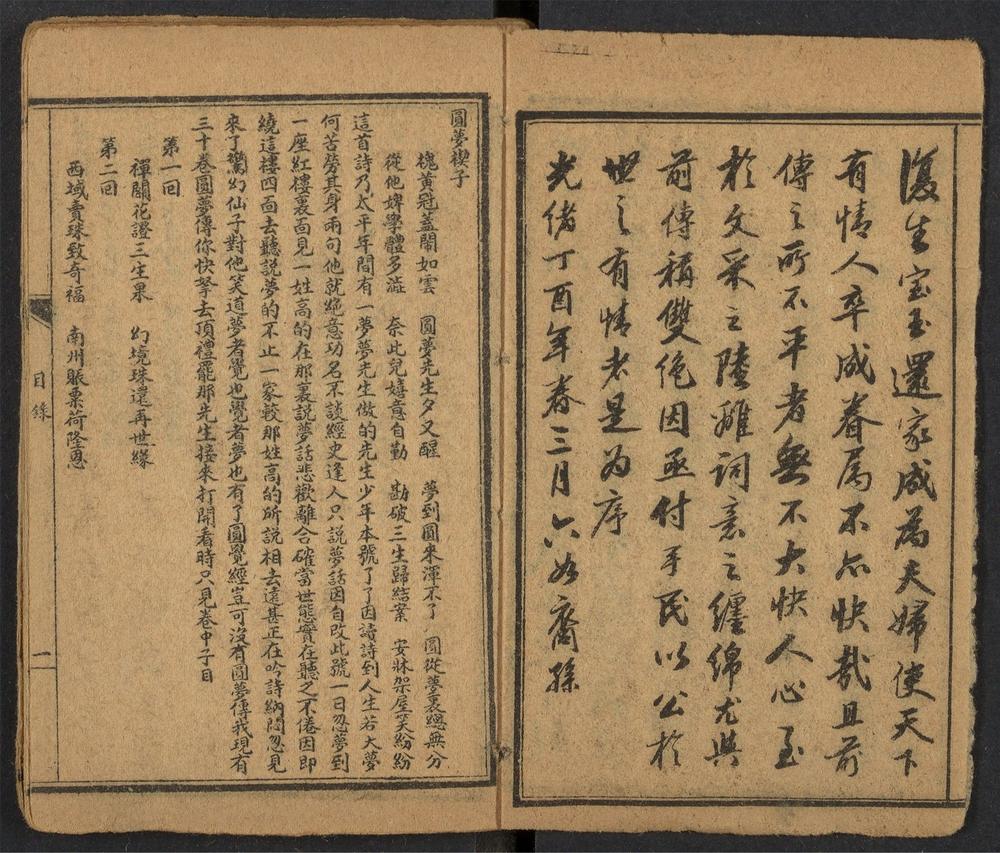 復生宝玉還家成為夫婦使天下
有情人卒成眷属不亦快哉且前
傳之所不平者無不大快人心至
於文采之陸離詞意之纏綿尤與
前傳稱雙絶因亟付手民以公於
世之有情者是为序
光緒丁酉年春三月六如裔孫
圓夢楔子
槐黃冠蓋鬧如雲 圓夢先生夕又醒 夢到圓來渾不了 圓從夢裏總無分
從他婢學體多滋 奈此兒嬉意自勤 勘破三生歸結案 安牀架屋笑紛紛
這首詩乃太平年間有一夢夢先生做的先生少年本號了了因讀詩到人生若大夢
何苦勞其身兩句他就絶意功名不談經史逢人只說夢話因自改此號一日忽夢到
一座紅樓裏面見一姓高的在那裏説夢話悲歡離合確當世態實在聽之不倦因即
繞這樓四面去聽説夢的不止一家較那姓高的所説相去遠甚正在吟詩納悶忽見
來了驚幻仙子對他笑道夢者覺也覺者夢也有了圓覺經豈可沒有圓夢傳我現有
三十卷圓夢傳你快拏去頂禮罷那先生接來打開看時只見卷中子目
第一回
禪關花證三生果 幻境珠還再世緣
第二回
西域賣珠致奇福 南州賑粟荷隆恩
目錄
一